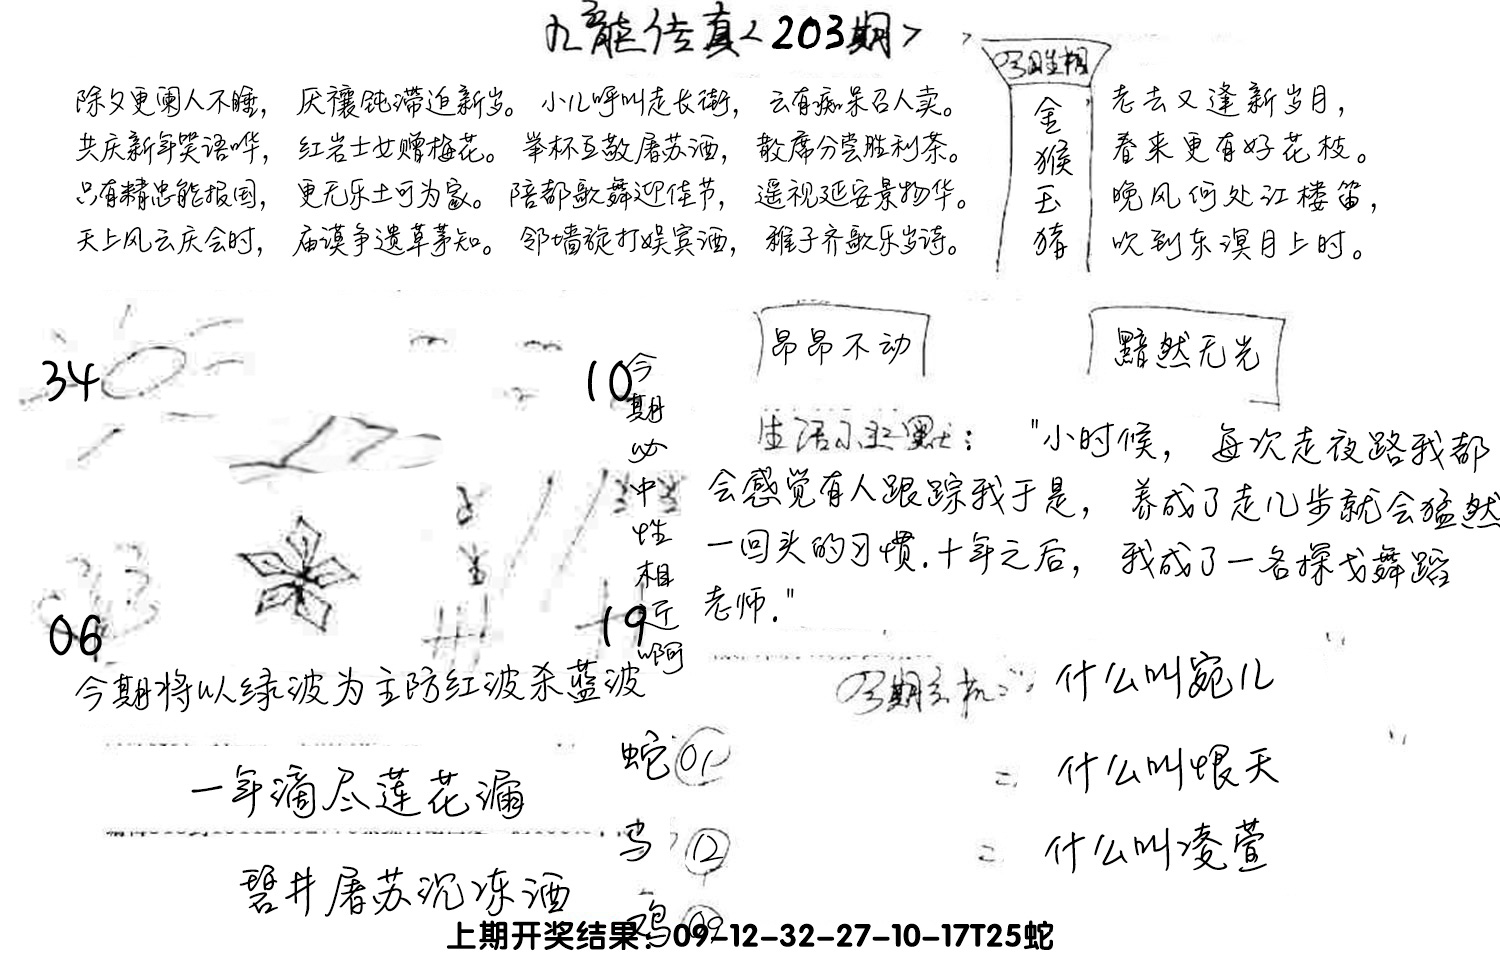 九龙传真<203期>
除夕更阑人不睡，厌禳钝滞迫新岁。小儿呼叫走长街，云有痴呆召人卖。
共庆新年笑语哗，红岩士女赠梅花。举杯互敬屠苏酒，散席分尝胜利茶。
只有精忠能报国，更无乐土可为家。陪都歌舞迎佳节，遥视延安景物华。
天上风云庆会时，庙谟争遗草茅知。邻墙旋打娱宾酒，稚子齐歌乐岁诗。
今期生相
金
猴
玉
猪
老去又逢新岁月，
春来更有好花枝。
晚风何处江楼笛，
吹到东溟月上时。
34
10
06
19
今期必中性相近啊
昂昂不动
黯然无光
生活小幽默：
"小时候，每次走夜路我都
会感觉有人跟踪我于是，养成了走几步就会猛然
一回头的习惯.十年之后，我成了一名探戈舞蹈
老师."
今期将以绿波为主防红波杀蓝波
一年滴尽莲花漏
碧井屠苏沉冻酒
蛇 01
鸟 12
鸡 09
今期玄机：什么叫宛儿
= 什么叫恨天
= 什么叫凌萱
上期开奖结果：09-12-32-27-10-17T25蛇